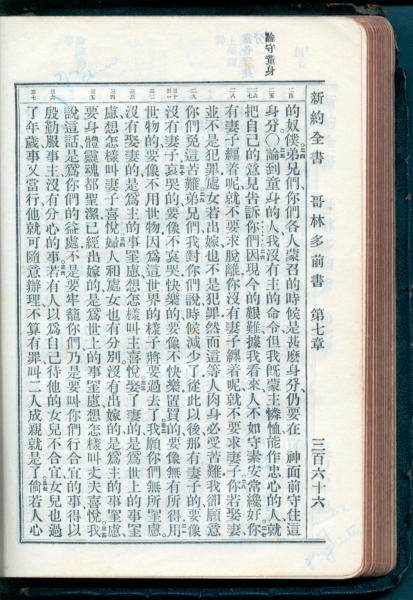 新約全書　哥林多前書　第七章　三百六十六
論守童身
的奴僕弟兄們你們各人蒙召的時候是甚麽身分仍要在　神面前守住這
身分〇論到童身的人我沒有主的命令但我旣蒙主憐恤能作忠心的人就
把自己的意見告訴你們因現今的艱難據我看來人不如守素安常纔好你
有妻子纏着呢就不要求脫離你沒有妻子纏着呢就不要求妻子你若娶妻
並不是犯罪處女若出嫁也不是犯罪然而這等人肉身必受苦難我卻願意
你們免這苦難弟兄們我對你們說時候減少了從此以後那有妻子的要像
沒有妻子哀哭的要像不哀哭快樂的要像不快樂置買的要像無有所得用
世物的要像不用世物因爲這世界的樣子將要過去了我願你們無所罣慮
沒有娶妻的是爲主的事罣慮想怎樣叫主喜悅娶了妻的是爲世上的事罣
慮想怎樣叫妻子喜悅婦人和處女也有分別沒有出嫁的是爲主的事罣慮
要身體靈魂都聖潔已經出嫁的是爲世上的事罣慮想怎樣叫丈夫喜悅我
說這話是爲你們的益處不是要牢籠你們乃是要叫你們行合宜的事得以
殷勤服事主沒有分心的事若有人以爲自己待他的女兒不合宜女兒也過
了年歲事又當行他就可隨意辦理不算有罪叫二人成親就是了倘若人心